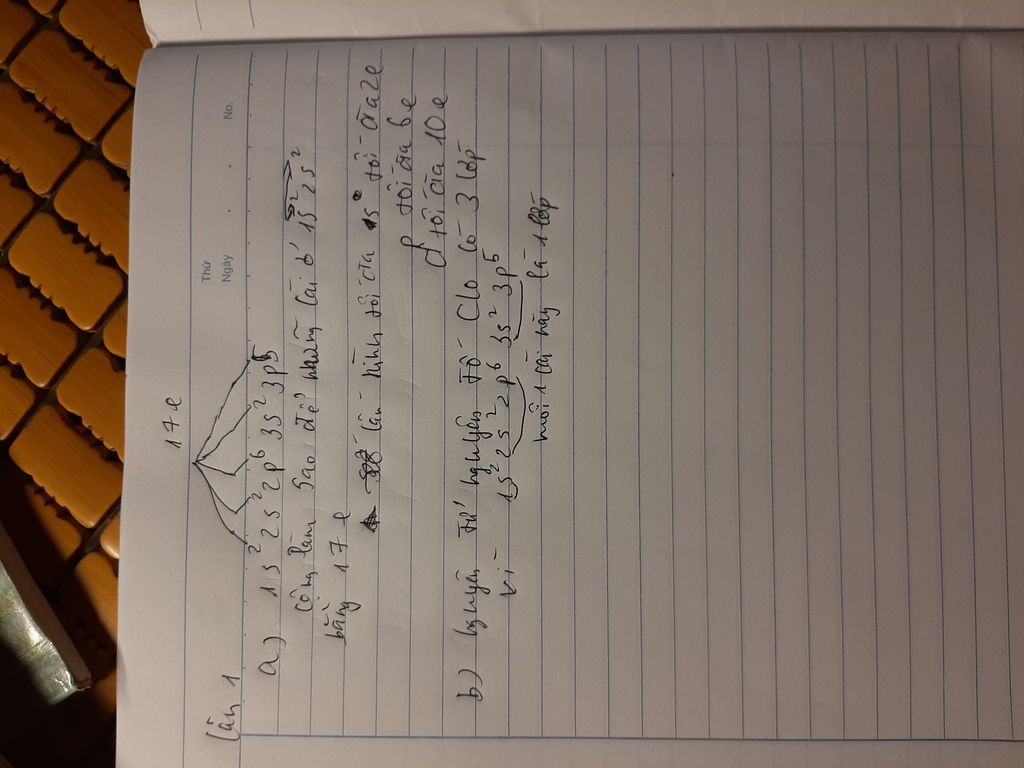 Thứ
Ngày
No.
Lần 1
17e
a) 1s² 2s² 2p⁶ 3s² 3p⁵
cộng làm sao để những cái ở 1s² 2s²
bằng 17e
cấu hình tối đa s tối đa 2e
tối đa 6e
d tối đa 10e
b) nguyên tử nguyên tố Clo có 3 lớp
vì 1s² 2s² 2p⁶ 3s² 3p⁵
mỗi 1 cái này là 1 lớp